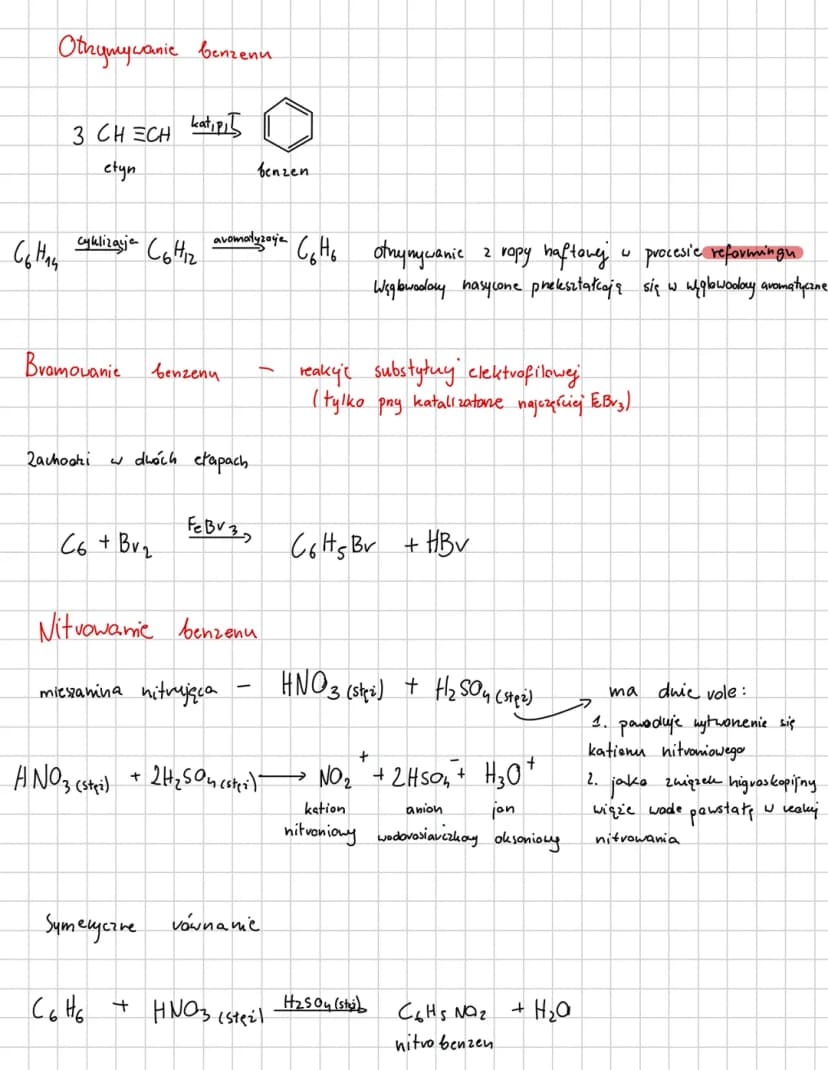 Otrzymywanie benzenu
3 CH≡CH kat,p,T
etyn benzen
C₆H₁₄ cyklizacja C₆H₁₂ aromatyzacja C₆H₆ otrzymywanie z ropy naftowej w procesie reformingu
Węglowodory nasycone przekształcają się w węglowodory aromatyczne
Bromowanie benzenu – reakcje substytucji elektrofilowej
(tylko przy katalizatorze najczęściej FeBr₃)
Zachodzi w dwóch etapach
C₆ + Br₂ FeBr₃→ C₆H₅Br + HBr
Nitrowanie benzenu
mieszanina nitrująca – HNO₃ (stęż) + H₂SO₄ (stęż) → ma dwie role:
1. powoduje wytworzenie się
kationu nitroniowego
HNO₃ (stęż) + 2H₂SO₄ (stęż) → NO₂⁺ + 2HSO₄⁻ + H₃O⁺
2. jako związek higroskopijny
kation anion jon
wiąże wodę powstałą w reakcji
nitroniowy wodorosiarczkowy oksoniowy
nitrowania
równanie
C₆H₆ + HNO₃ (stęż) H₂SO₄ (stęż)→ C₆H₅NO₂ + H₂O
nitrobenzen